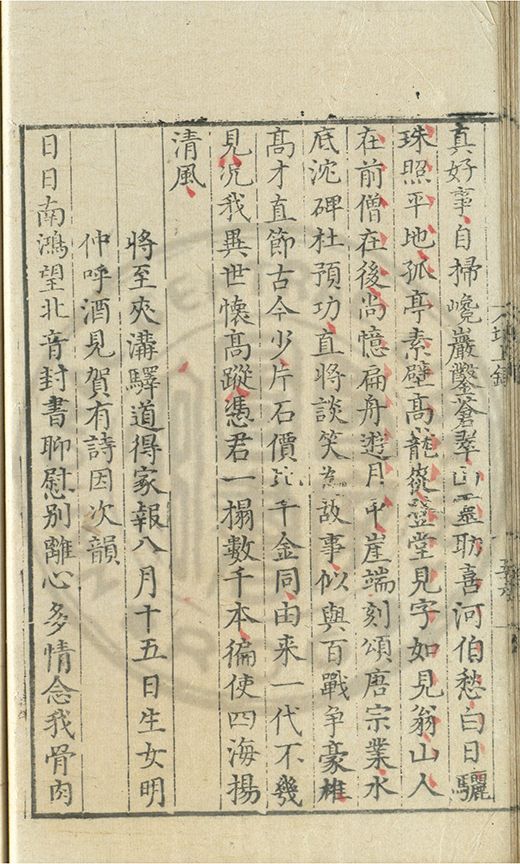 真好事自掃巉巖鑿蒼翠山靈助喜河伯愁白日驪
珠照平地孤亭素壁高巃嵸登堂見字如見翁山人
在前僧在後尚憶扁舟遊月中崖端刻頌唐宗業水
底沈碑杜預功直將談笑為故事似與百戰爭豪雄
高才直節古今少片石價比千金同由来一代不幾
見况我異世懷高蹤憑君一搨數千本徧使四海揚
清風
將至夾溝驛道得家報八月十五日生女明
仲呼酒見賀有詩因次韻
日日南鴻望北音封書聊慰別離心多情念我骨肉